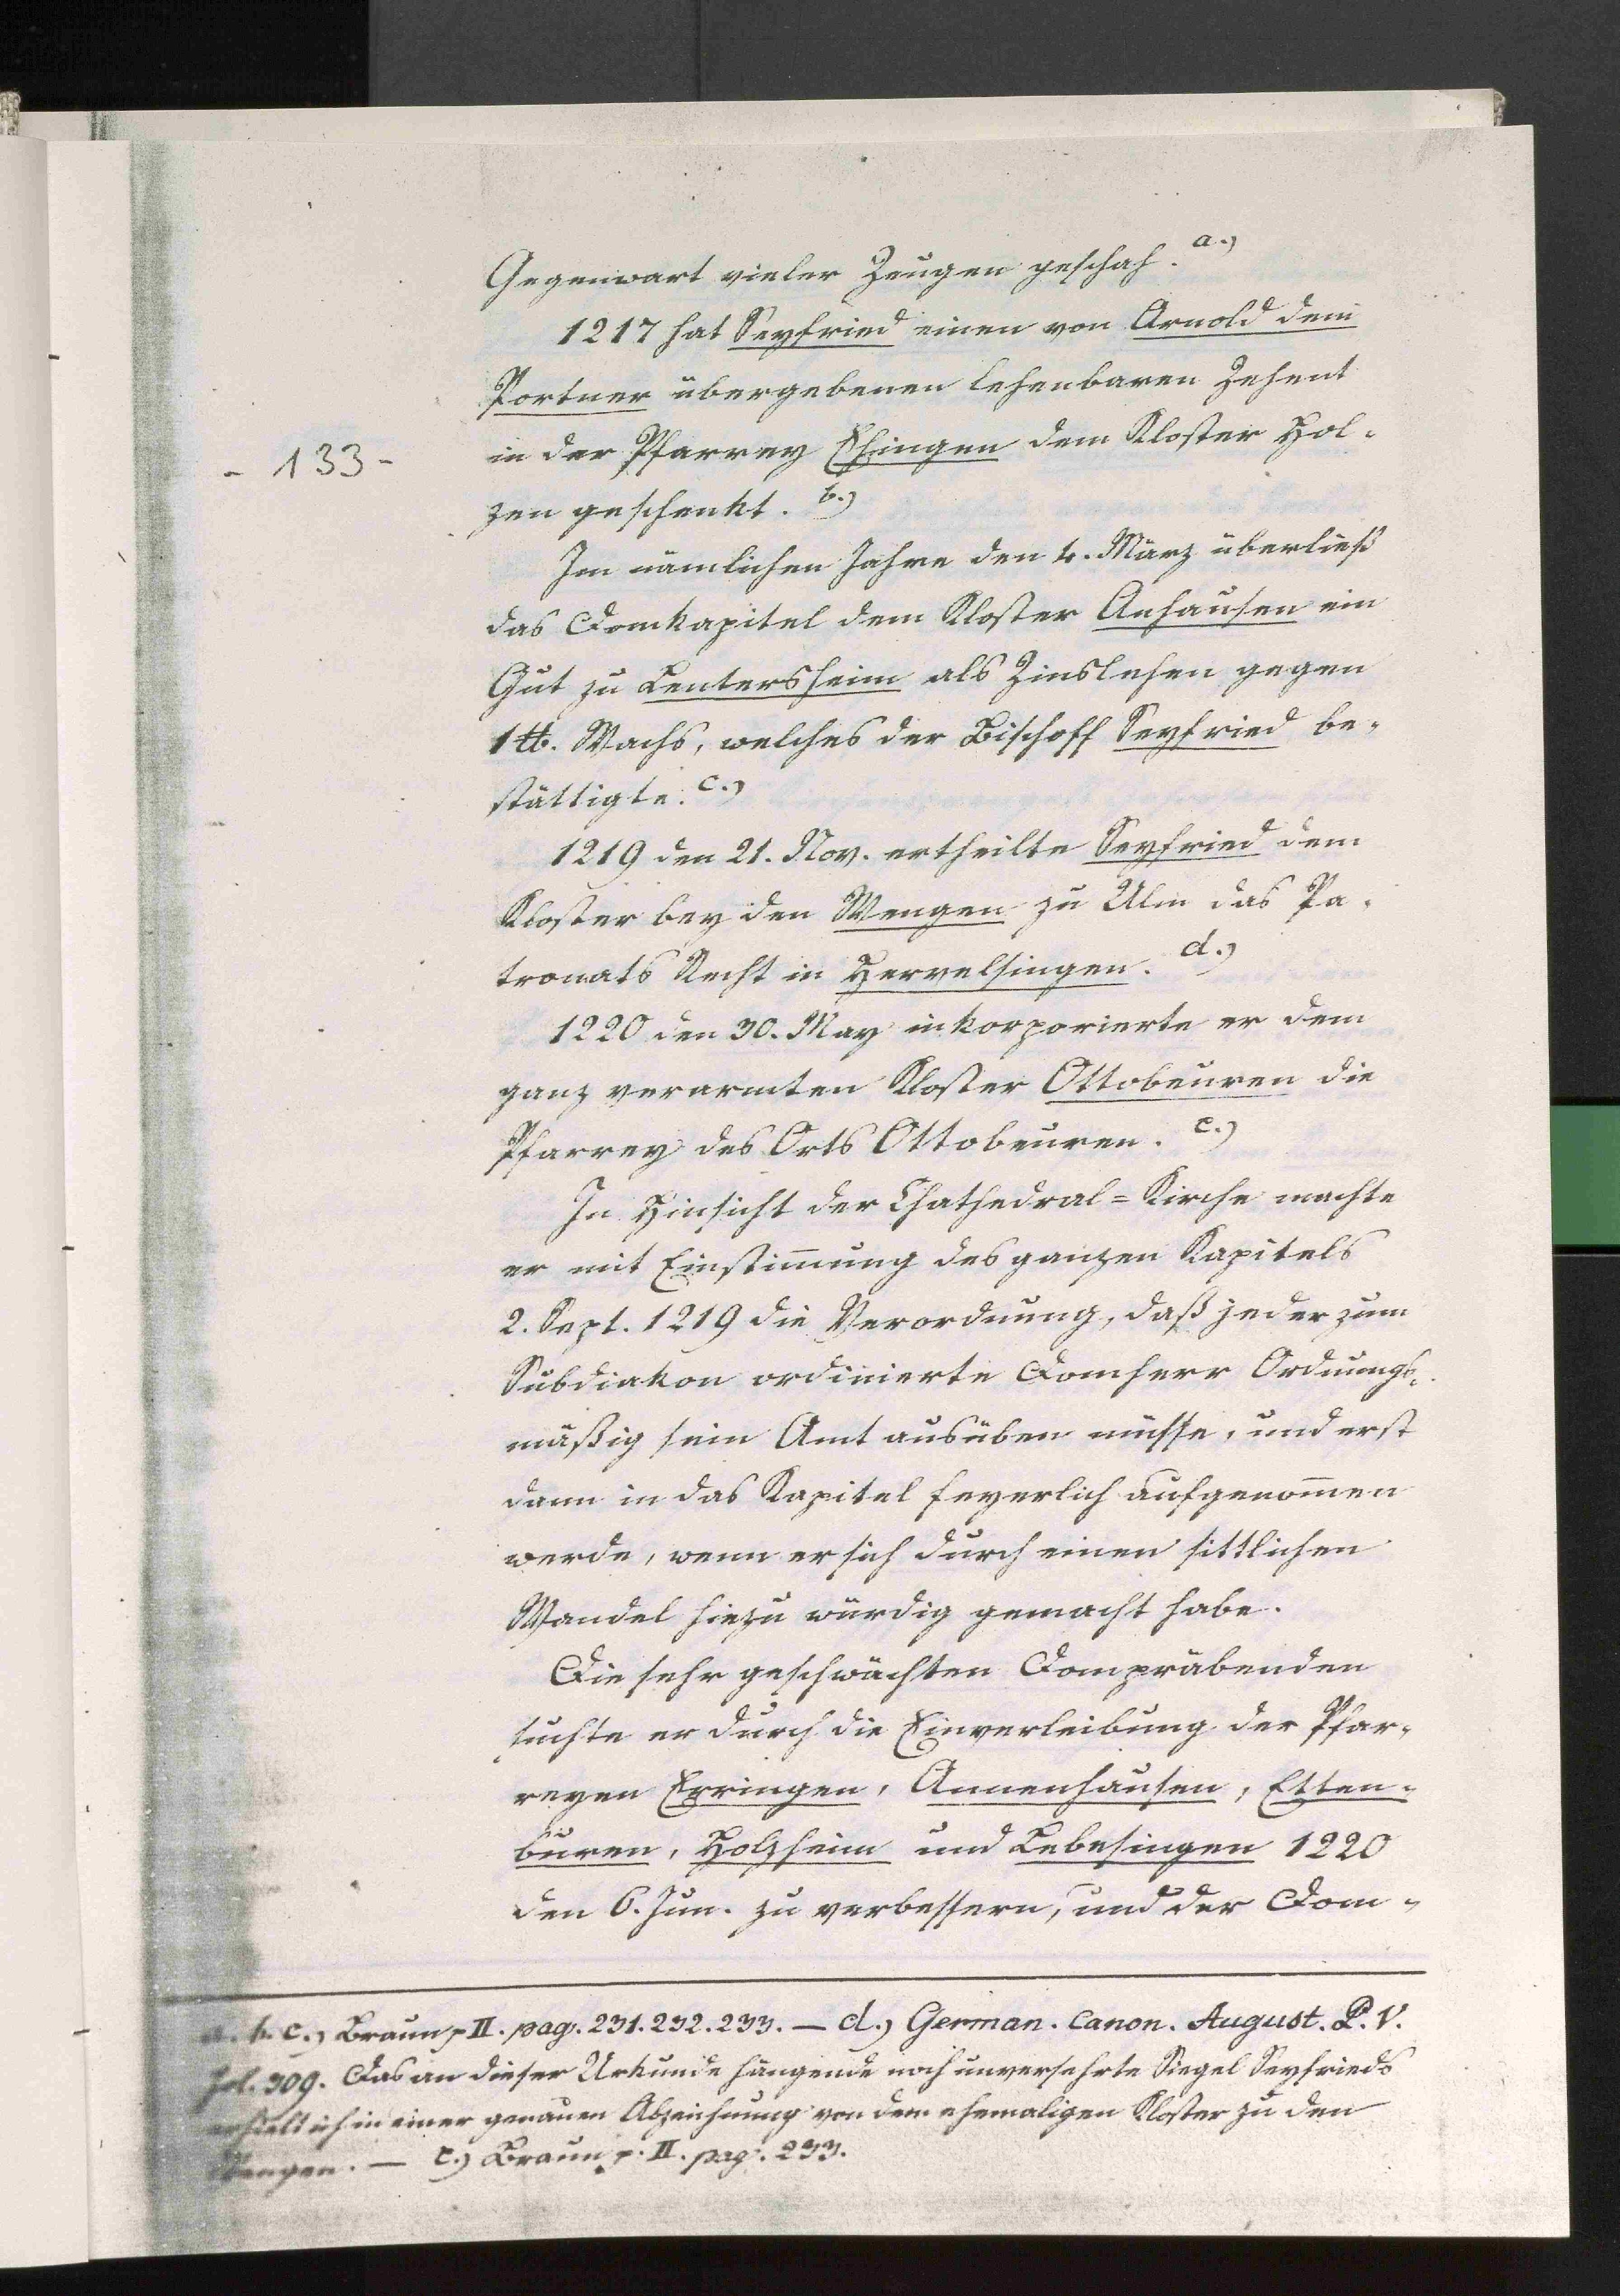 Gegenwart vieler Zeugen geschah. a.)
1217 hat Seyfried einen von Arnold dem
Portner übergebenen lehenbaren Zehent
- 133 -
in der Pfarrey Ehingen dem Kloster Hol-
zen geschenkt. b.)
Im nämlichen Jahre den 4. März überließ
das Domkapitel dem Kloster Anhausen ein
Gut zu Lentersheim als Zinslehen gegen
1 ℔. Wachs, welches der Bischoff Seyfried be-
stättigte. c.)
1219 den 21. Nov. ertheilte Seyfried dem
Kloster bey den Wengen zu Ulm das Pa-
tronats Recht in Hervelsingen. d.)
1220 den 30. May inkorporierte er dem
ganz verarmten Kloster Ottobeuren die
Pfarrey des Orts Ottobeuren. e.)
In Hinsicht der Chathedral=Kirche machte
er mit Einstim̄ung des ganzen Kapitels
2. Sept. 1219 die Verordnung, daß jeder zum
Subdiakon ordinierte Domherr Ordnungs-
mäßig sein Amt ausüben müsse, und erst
dann in das Kapitel feyerlich aufgenom̄en
werde, wenn er sich durch einen sittlichen
Wandel hiezu würdig gemacht habe.
Die sehr geschwächten Dompräbenden
suchte er durch die Einverleibung der Pfar-
reyen Erringen, Annenhausen, Etten-
buren, Holzheim und Lebesingen 1220
den 6. Jun. zu verbessern, und der Dom-
a. b. c.) Braun p. II. pag. 231. 232. 233. — d.) German. Canon. August. P. V.
fol. 309. Das an dieser Urkunde hängende noch unversehrte Siegel Seyfrieds
erhielt ich in einer genauen Abzeichnung von dem ehemaligen Kloster zu den
Wengen. — e.) Braun p. II. pag. 233.